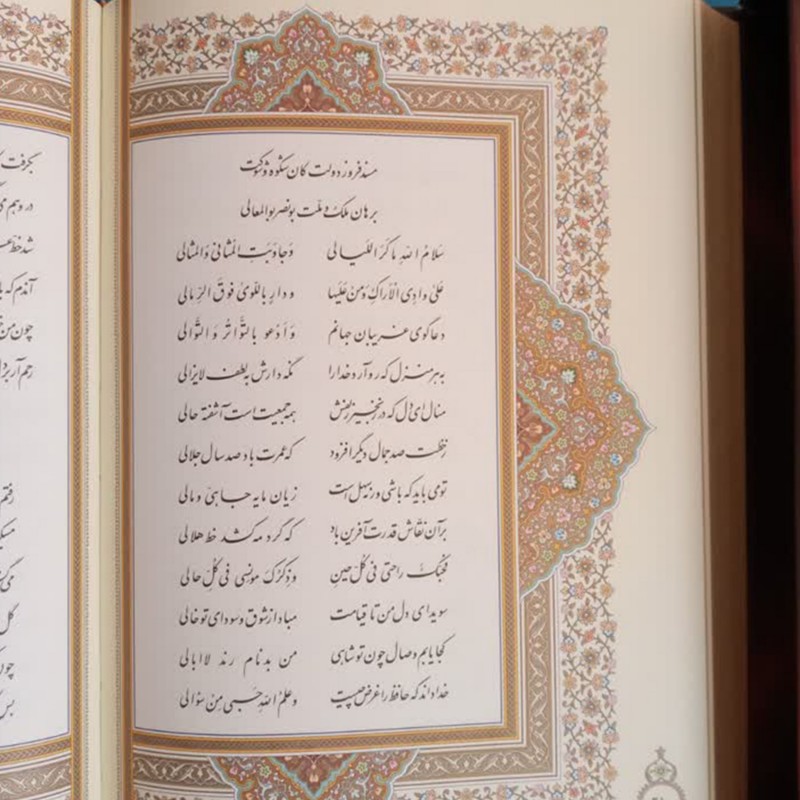 مسند فروز دولت کان شکوه و شوکت
برهان ملک و ملت بونصر بوالمعالی
سَلامُ اللهِ ما کَرَّ اللَیالی وَ جاوَبَتِ المَثانی وَ المَثالی
عَلیٰ وادِی الاَراکِ وَ مَن عَلَیها و دارٍ بِاللِویٰ فَوقَ الرِّمالی
دعاگوی غریبان جهانم وَ اَدعو بِالتَّواتُرِ وَ التَّوالی
به هر منزل که رو آرد خدا را نگه دارش به لطف لایزالی
منال ای دل که در زنجیر زلفش همه جمعیت است آشفته حالی
ز خطت صد جمال دیگر افزود که عمرت باد صد سال جلالی
تو می باید که باشی ور نه سهل است زیان مایه جاهی و مالی
بر آن نقاش قدرت آفرین باد که گرد مه کشد خط هلالی
فَحُبُّکَ راحتی فی کُلِّ حینٍ و ذِکرُکَ مونِسی فی کُلِّ حالی
سویدای دل من تا قیامت مباد از شوق و سودای تو خالی
کجا یابم وصال چون تو شاهی من بدنام رند لاابالی
خدا داند که حافظ را غرض چیست و عِلمُ اللهِ حَسبی مِن سُؤالی
بگرفت
در وهم
شد خط
آندم که
چون من
رحم آر بر دل
رفتم
مسکین
می
گل
چون
بس